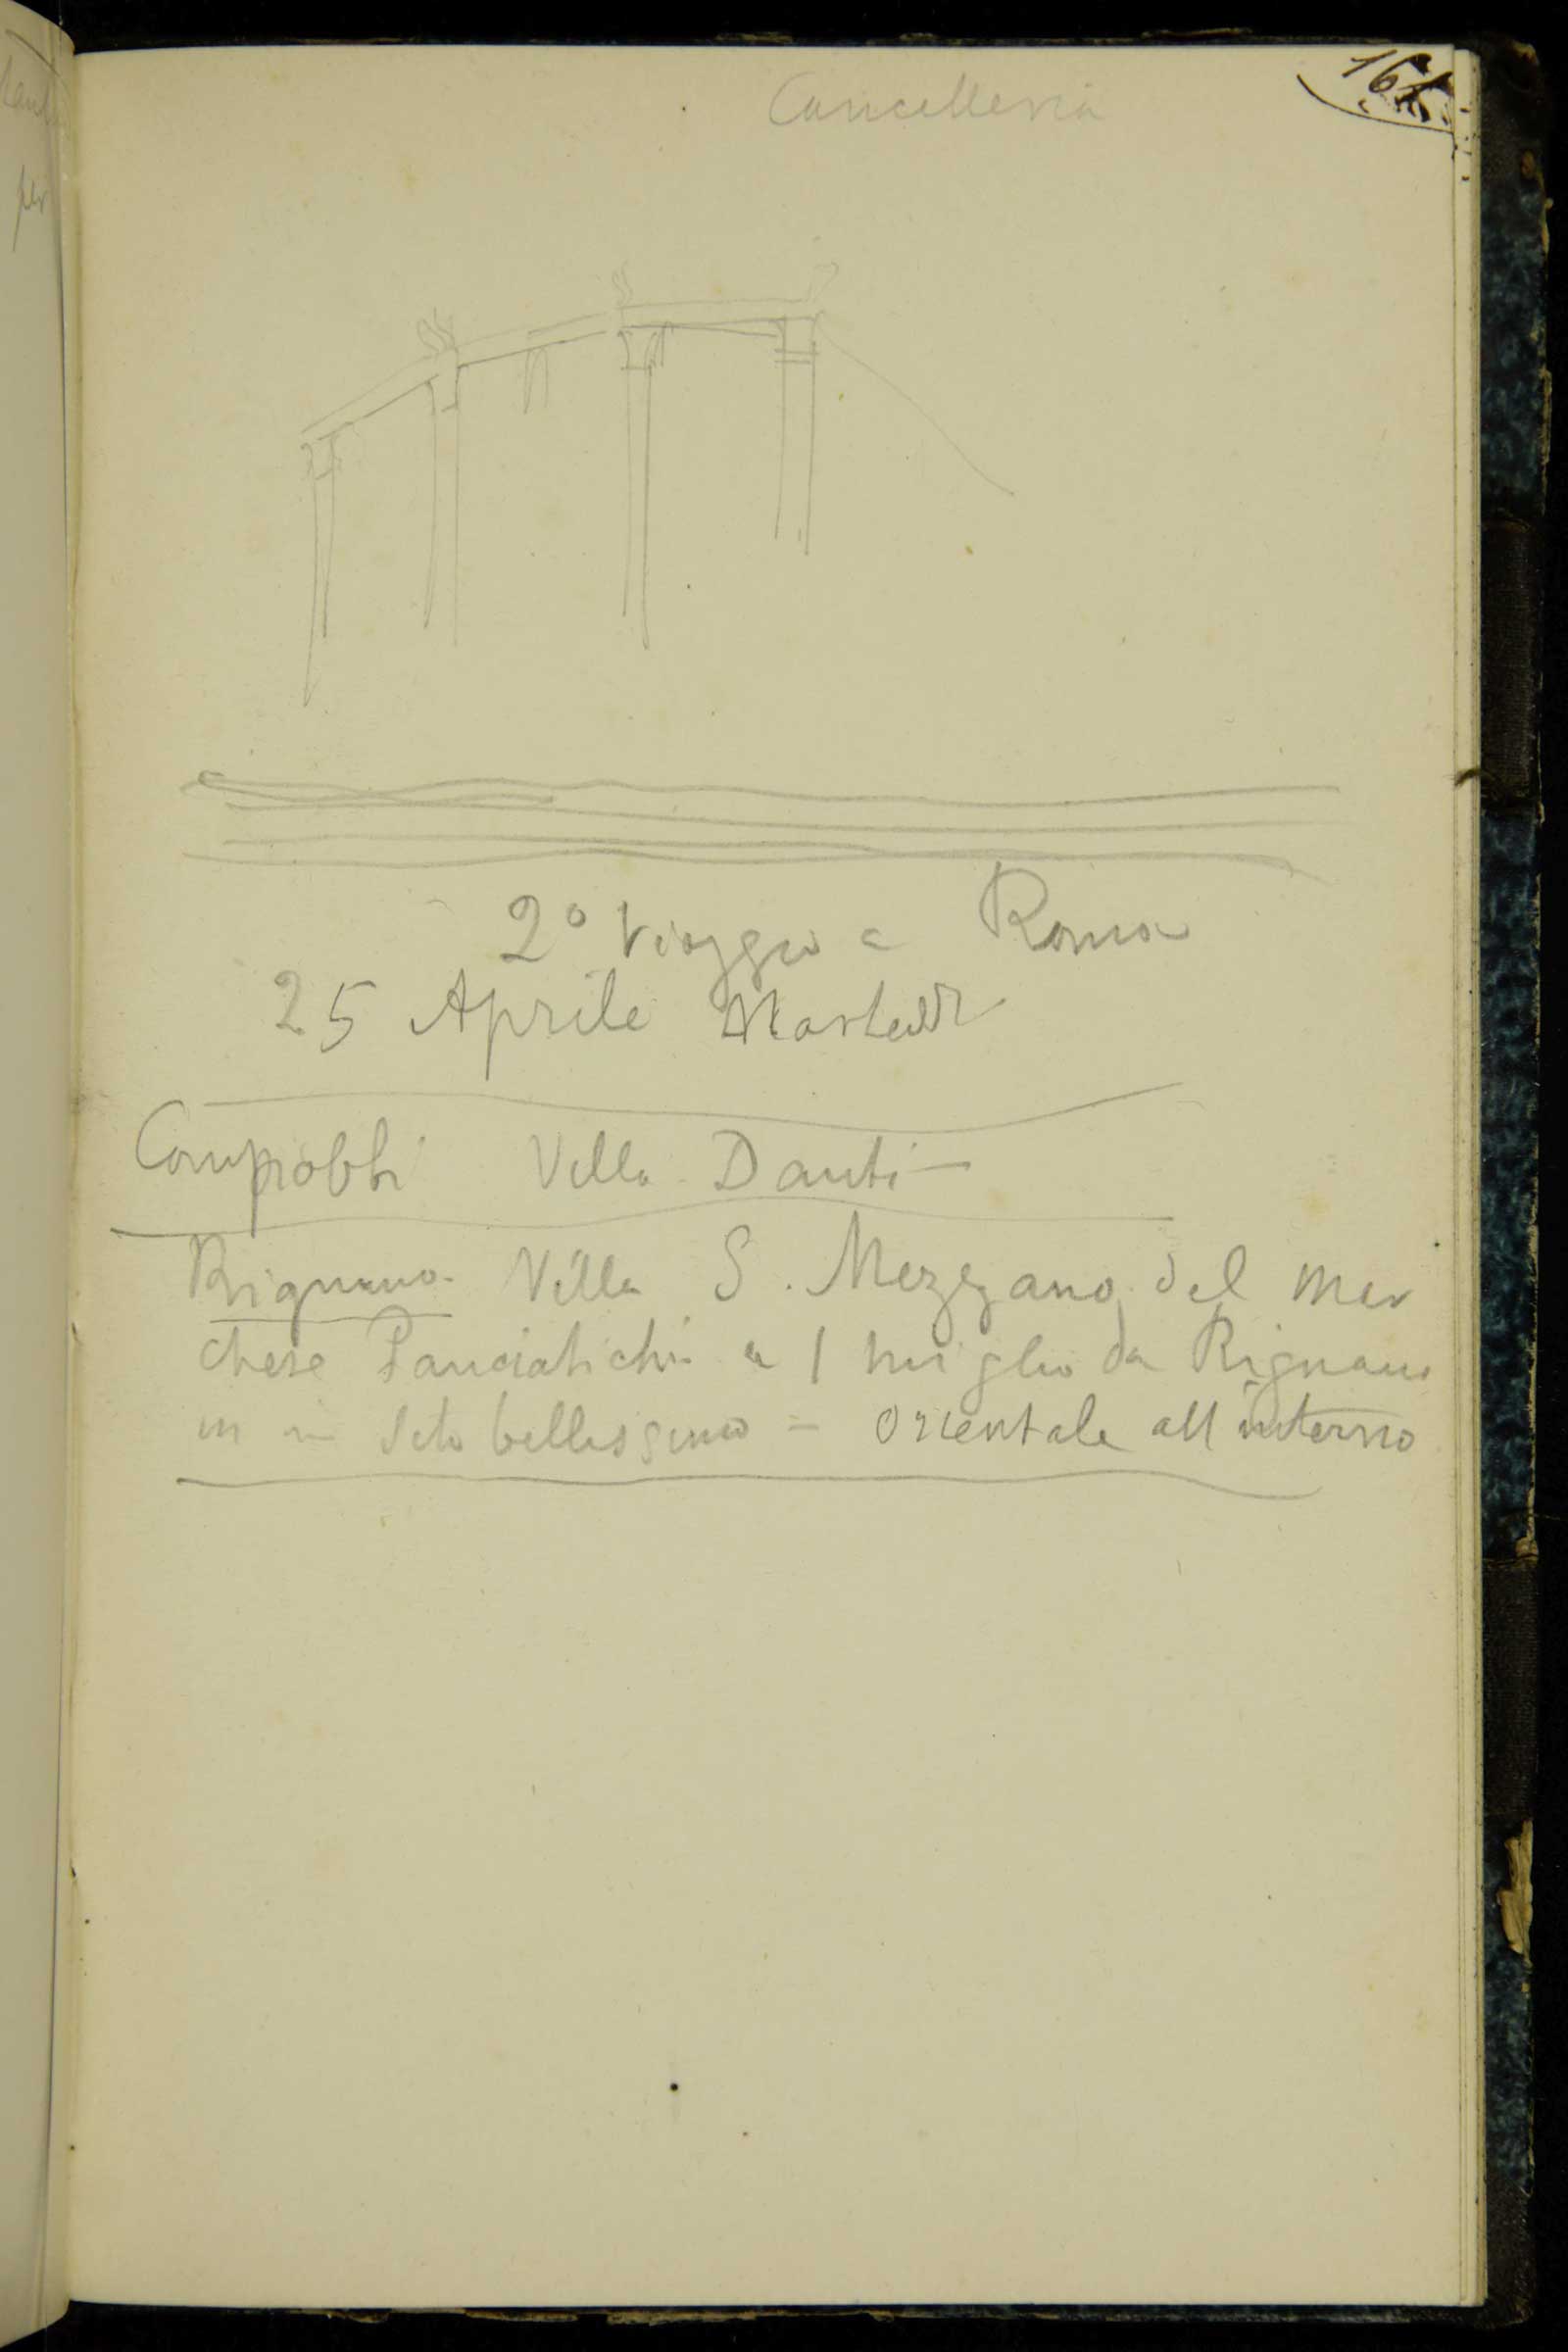 Cancelleria
2° Viaggio a Roma
25 Aprile Martedì
Compiobbi Villa Danti
Rignano. Villa S. Mezzano del Mar
chese Panciatichi a 1 miglio da Rignano
in un sito bellissimo = Orientale all'interno